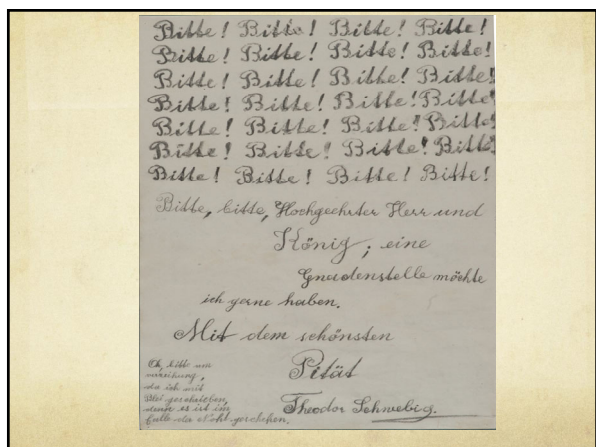 Bitte! Bitte! Bitte! Bitte!
Bitte! Bitte! Bitte! Bitte!
Bitte! Bitte! Bitte! Bitte!
Bitte! Bitte! Bitte! Bitte!
Bitte! Bitte! Bitte! Bitte!
Bitte! Bitte! Bitte! Bitte!
Bitte! Bitte! Bitte! Bitte!
Bitte, bitte, Hochgeehrter Herr und
König; eine
Gnadenstelle möchte
ich gerne haben.
Mit dem schönsten
Petät
Theodor Schwebig.
Oh, bitte um
verzeihung,
da ich mit
Blei geschrieben,
denn es ist im
Falle der Noth geschehen.